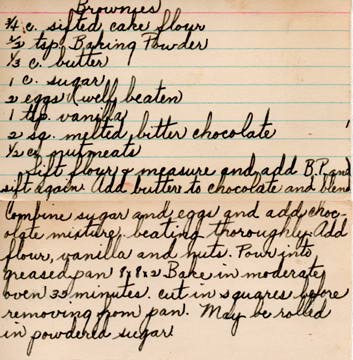 Brownies
3/4 c. sifted cake flour
1/2 tsp. Baking Powder
1/3 c. butter
1 c. sugar
2 eggs (well beaten
1 tsp. vanilla
2 sq. melted bitter chocolate
1/2 c. nutmeats
Sift flour & measure and add B.P. and
sift again. Add butter to chocolate and blend
Combine sugar and eggs and add choc-
olate mixture, beating thoroughly. Add
flour, vanilla and nuts. Pour into
greased pan 8x8x2 Bake in moderate
oven 35 minutes. cut in squares before
removing from pan. May be rolled
in powdered sugar!